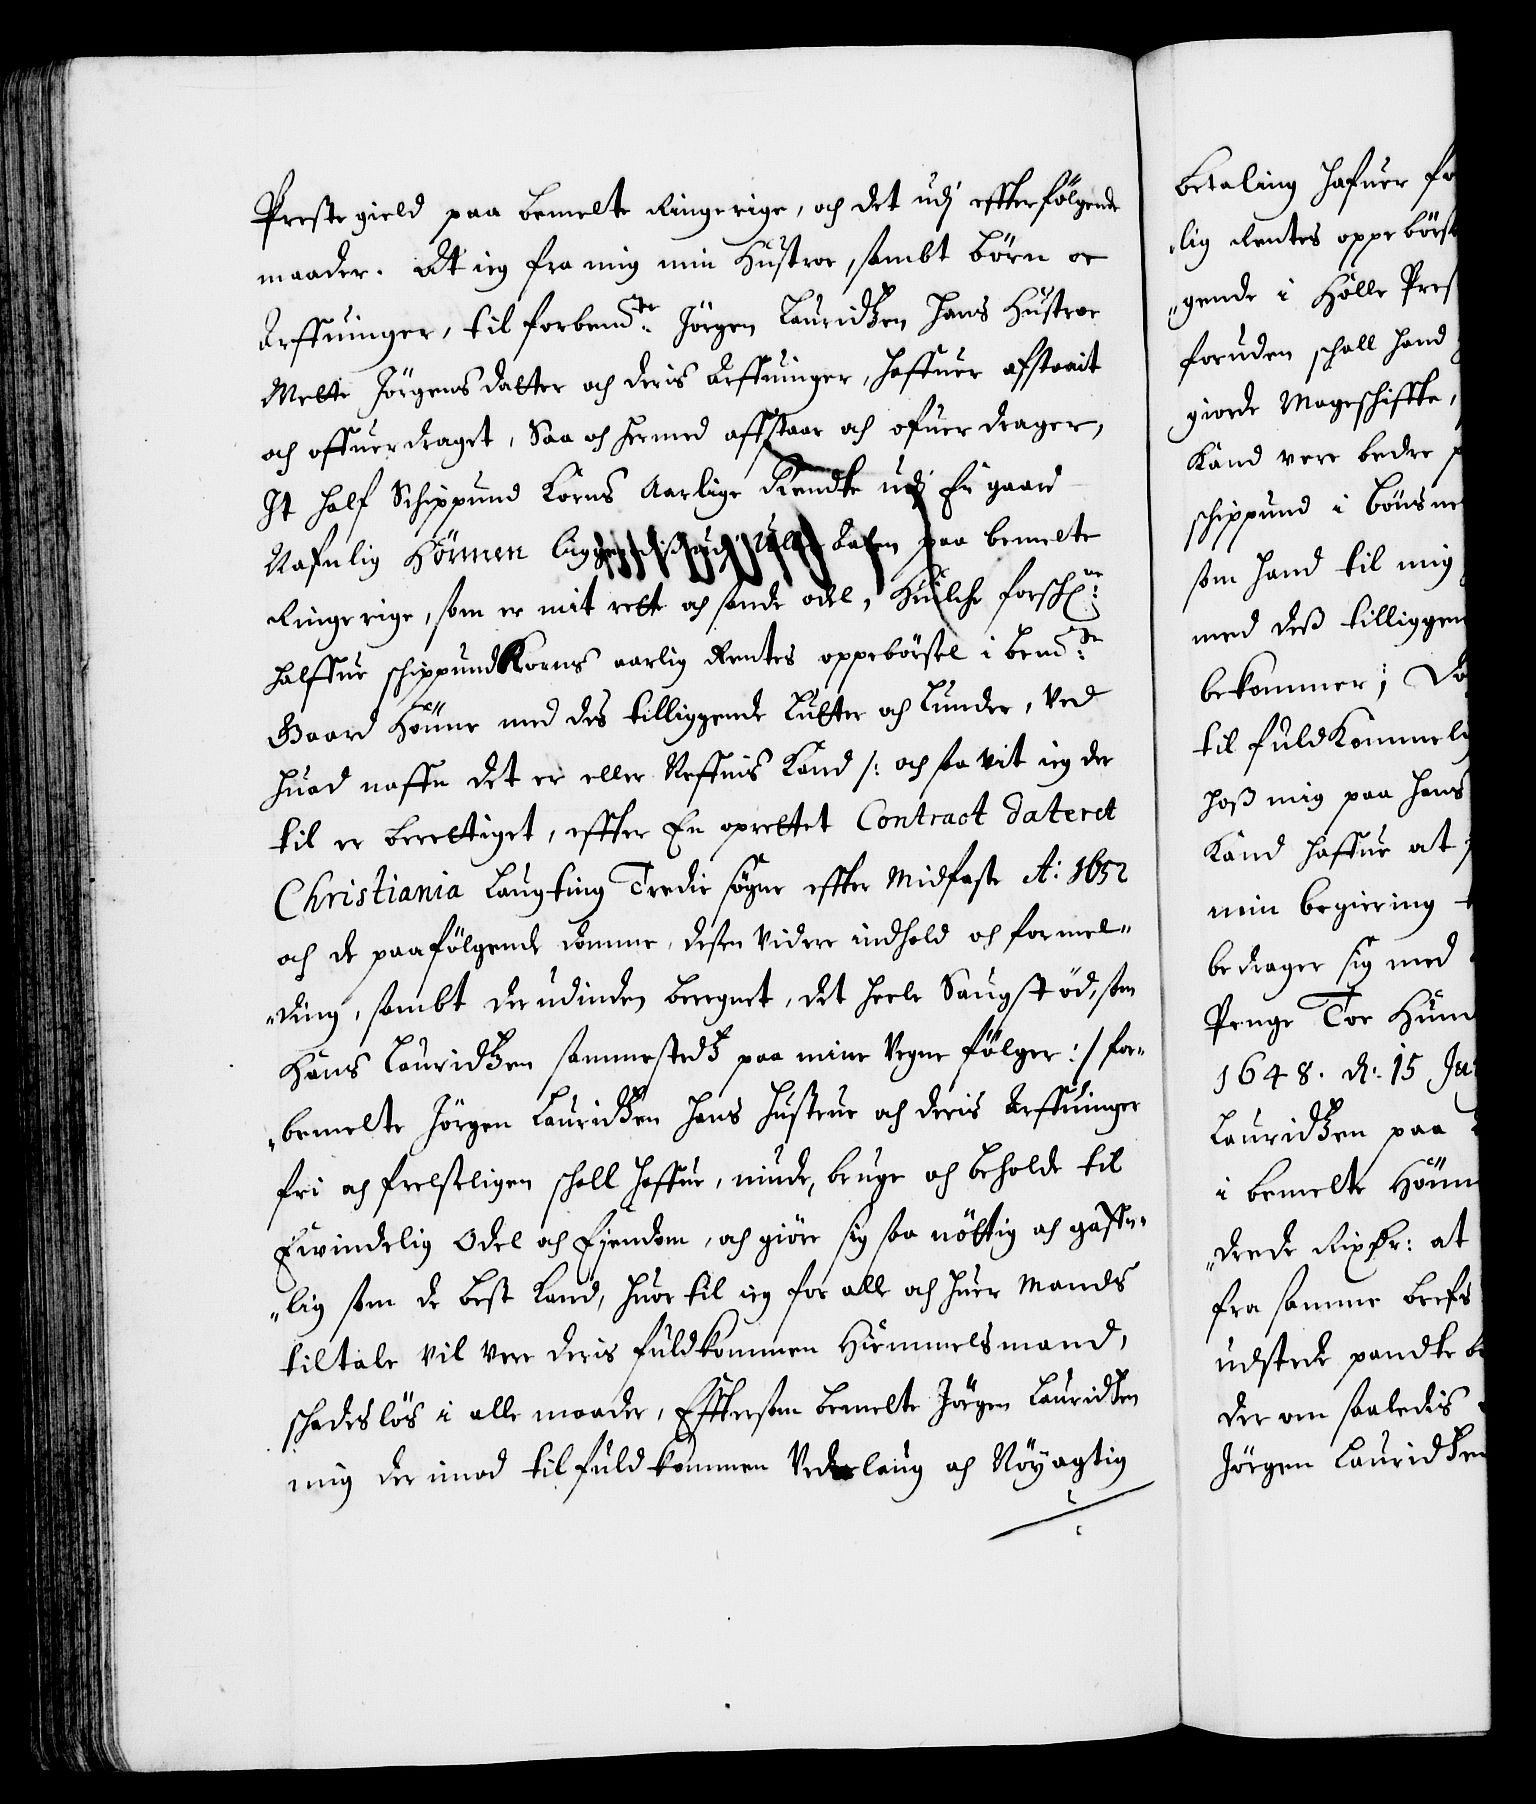 Prestegield paa bemelte Ringerige, och det udj effterfølgende
maader. At ieg fra mig min Hustroe, sambt børn oc
Arffuinger, til forbemte Jörgen Lauridtzen hans Hustroe
Mette Jörgens datter och deris Arffuinger, haffuer afstaait
och offuerdraget, Saa och hermed affstaar och ofuerdrager,
It half Schippund Korns Aarlige Rendte udj En gaard
Nafnlig Hörnen liggendis udj dalen paa bemelte
Ringerige, som er mit rette och sande odel, Huilche forschne
halffue schippund Korns aarlig Rentes oppebörsel i bemte
Gaard Hönne med des tilliggende Lutter och Lunder, ved
huad naffn det er eller Neffnis Kand /: och saa vit ieg der
til er berettiget, effter En oprettet Contract dateret
Christiania Laugting Tredie søgne effter Midfaste A: 1652
och de paafölgende domme, desen videre indhold och formel„
„ding, sambt derudinden beregnet, det heele Saugstöd, som
Hans Lauridtzen sammestedtz paa mine Vegne fölger :/ for„
„bemelte Jörgen Lauridtzen hans hustrue och deris Arffuinger
fri och frelseligen schall haffue, niude, bruge och beholde til
Evindelig Odel och Ejendom, och giöre sig saa nöttig och gaffn„
„lig som de best Kand, huor til ieg for alle och huer Mands
tiltale vil vere deris fuldkommen Hiemmelsmand,
schadeslös i alle maader, Efftersom bemelte Jörgen Lauridtzen
mig der imod til fuldkommen Vederlaug och Nöyagtig
betaling hafuer
„lig Rentes oppebörs
„gende i Hölle Pres
foruden schall hand
giorde Mageschiffte,
Kand vere bedre
schippund i Bönsne
som hand til mig
med deß tilliggen
bekommer;
til fuldkommeli
hoß mig paa hans
Kand haffue at
min begiering
bedrager sig med
Penge Toe Hun
1648. d: 15 Ju
Lauridtzen paa
i bemelte Hönn
„drede Rixdr: at
fra samme brefs
udstede pandte b
der om saaledis
Jörgen Lauridtzen